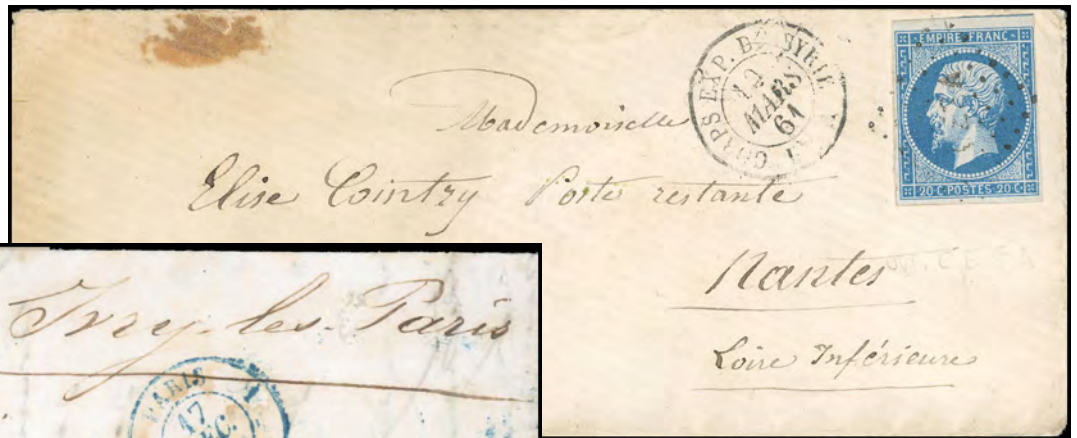 CORPS EXP. DE SYRIE
12
MARS
61
EMPIRE FRANC
20 C · POSTES · 20 C
Mademoiselle
Elise Cointry Poste restante
Nantes
Loire Inférieure
Ivry-les-Paris
PARIS 1
17